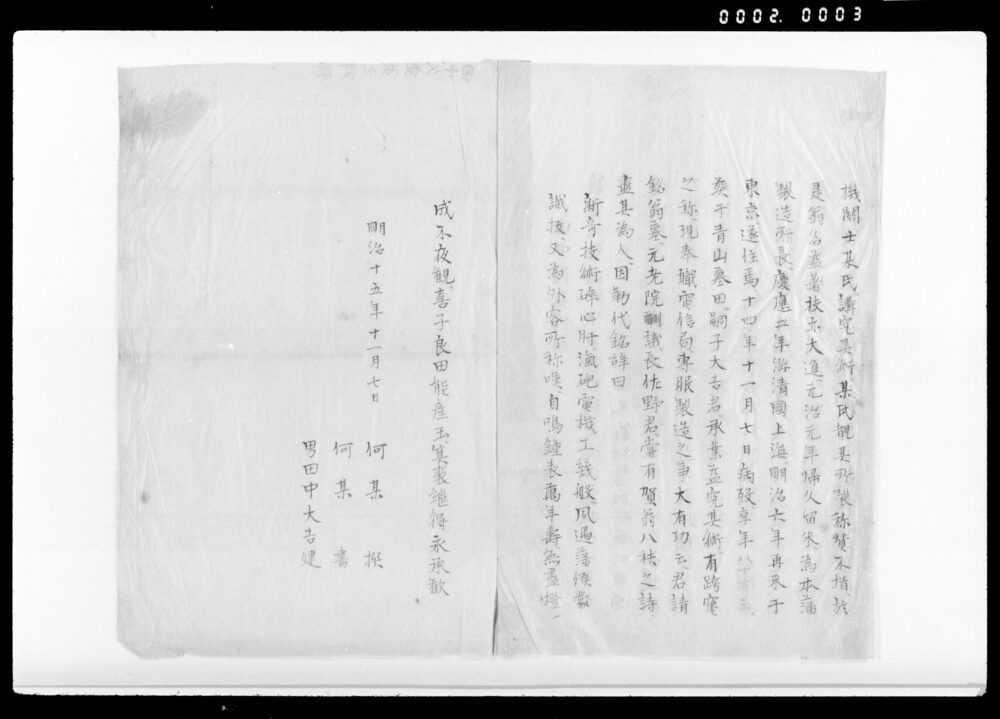 0002. 0003
機關士某氏講究其術某氏觀其所製称賛不措於
是翁名益著技亦大進元治元年帰久留米為本藩
製造所長慶應二年游清國上海明治六年再来于
東京遂住焉十四年十一月七日病歿享年八十三
葬于青山墓田嗣子大吉君承業益究其術有跨竃
之称現奉職電信局専服製造之事大有功云君請
銘翁墓元老院副議長佐野君嘗有賀翁八秩之詩
盡其為人因勒代銘辞曰
新奇技術砕心肝汽砲電機工銭般夙遇藩侯蒙
識抜又為外客所称嘆自鳴鐘表萬年壽無盡燈
成不夜觀喜子良田能産玉箕裘継得永承歓
明治十五年十一月七日 何某 撰
何某 書
男田中大吉建